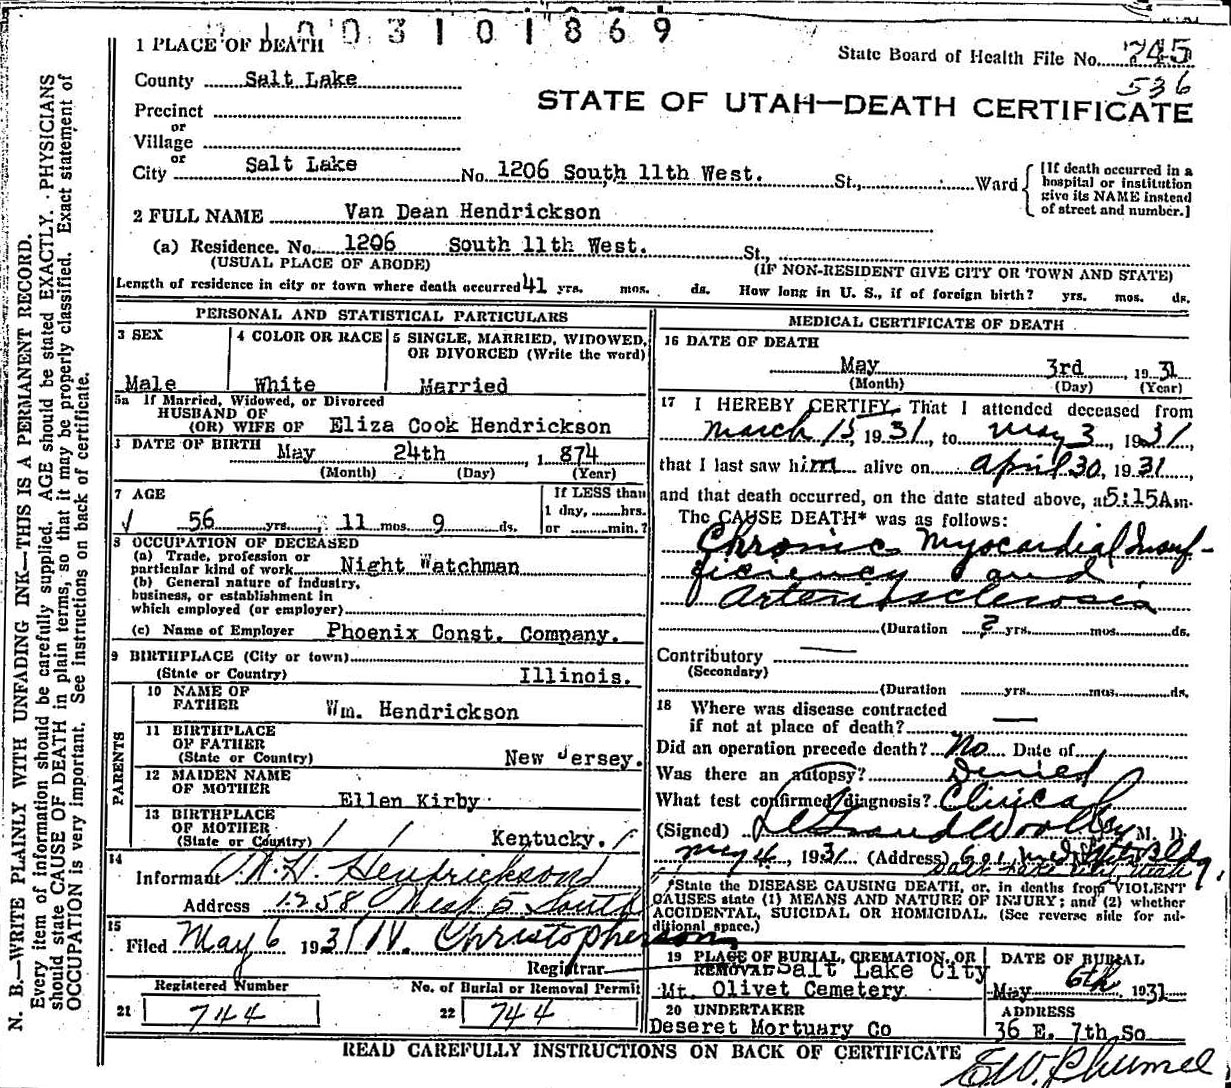 1003101869
1 PLACE OF DEATH
State Board of Health File No. 745
536
County Salt Lake
STATE OF UTAH—DEATH CERTIFICATE
Precinct
or
Village
or
City Salt Lake No. 1206 South 11th West. St., Ward
[If death occurred in a
hospital or institution
give its NAME instead
of street and number.]
2 FULL NAME Van Dean Hendrickson
(a) Residence. No. 1206 South 11th West. St.,
(USUAL PLACE OF ABODE) (IF NON-RESIDENT GIVE CITY OR TOWN AND STATE)
Length of residence in city or town where death occurred 41 yrs. mos. ds. How long in U. S., if of foreign birth? yrs. mos. ds.
PERSONAL AND STATISTICAL PARTICULARS
3 SEX
Male
4 COLOR OR RACE
White
5 SINGLE, MARRIED, WIDOWED,
OR DIVORCED (Write the word)
Married
5a If Married, Widowed, or Divorced
HUSBAND OF
(OR) WIFE OF Eliza Cook Hendrickson
DATE OF BIRTH May 24th, 1874
(Month) (Day) (Year)
7 AGE
56 yrs. 11 mos. 9 ds.
If LESS than
1 day, hrs.
or min.?
8 OCCUPATION OF DECEASED
(a) Trade, profession or
particular kind of work Night Watchman
(b) General nature of industry,
business, or establishment in
which employed (or employer)
(c) Name of Employer Phoenix Const. Company.
9 BIRTHPLACE (City or town)
(State or Country) Illinois.
PARENTS
10 NAME OF
FATHER Wm. Hendrickson
11 BIRTHPLACE
OF FATHER
(State or Country) New Jersey.
12 MAIDEN NAME
OF MOTHER Ellen Kirby
13 BIRTHPLACE
OF MOTHER
(State or Country) Kentucky.
14
Informant W. H. Hendrickson
Address 1258 West 5 South
15
Filed May 6 1931 Christopherson
Registrar
Registered Number No. of Burial or Removal Permit
21 744 22 744
MEDICAL CERTIFICATE OF DEATH
16 DATE OF DEATH
May 3rd, 1931
(Month) (Day) (Year)
17 I HEREBY CERTIFY, That I attended deceased from
March 15, 1931, to May 3, 1931,
that I last saw him alive on April 30, 1931
and that death occurred, on the date stated above, at 5:15A m.
The CAUSE DEATH* was as follows:
Chronic Myocardial Insuf-
ficiency and
Arteriosclerosis
(Duration ? yrs. mos. ds.
Contributory
(Secondary)
(Duration yrs. mos. ds.
18 Where was disease contracted
if not at place of death?
Did an operation precede death? No Date of
Was there an autopsy? Denied
What test confirmed diagnosis? Clinical
(Signed) LeGrand Woolley M. D.
May 4, 1931 (Address) Bldg
Salt Lake City, Utah
*State the DISEASE CAUSING DEATH, or, in deaths from VIOLENT
CAUSES state (1) MEANS AND NATURE OF INJURY; and (2) whether
ACCIDENTAL, SUICIDAL OR HOMICIDAL. (See reverse side for ad-
ditional space.)
19 PLACE OF BURIAL, CREMATION, OR
REMOVAL Salt Lake City
Mt. Olivet Cemetery
DATE OF BURIAL
May 6th 1931
20 UNDERTAKER
Deseret Mortuary Co
ADDRESS
36 E. 7th So
READ CAREFULLY INSTRUCTIONS ON BACK OF CERTIFICATE
N. B.—WRITE PLAINLY WITH UNFADING INK—THIS IS A PERMANENT RECORD.
Every item of information should be carefully supplied. AGE should be stated EXACTLY. PHYSICIANS
should state CAUSE OF DEATH in plain terms, so that it may be properly classified. Exact statement of
OCCUPATION is very important. See instructions on back of certificate.